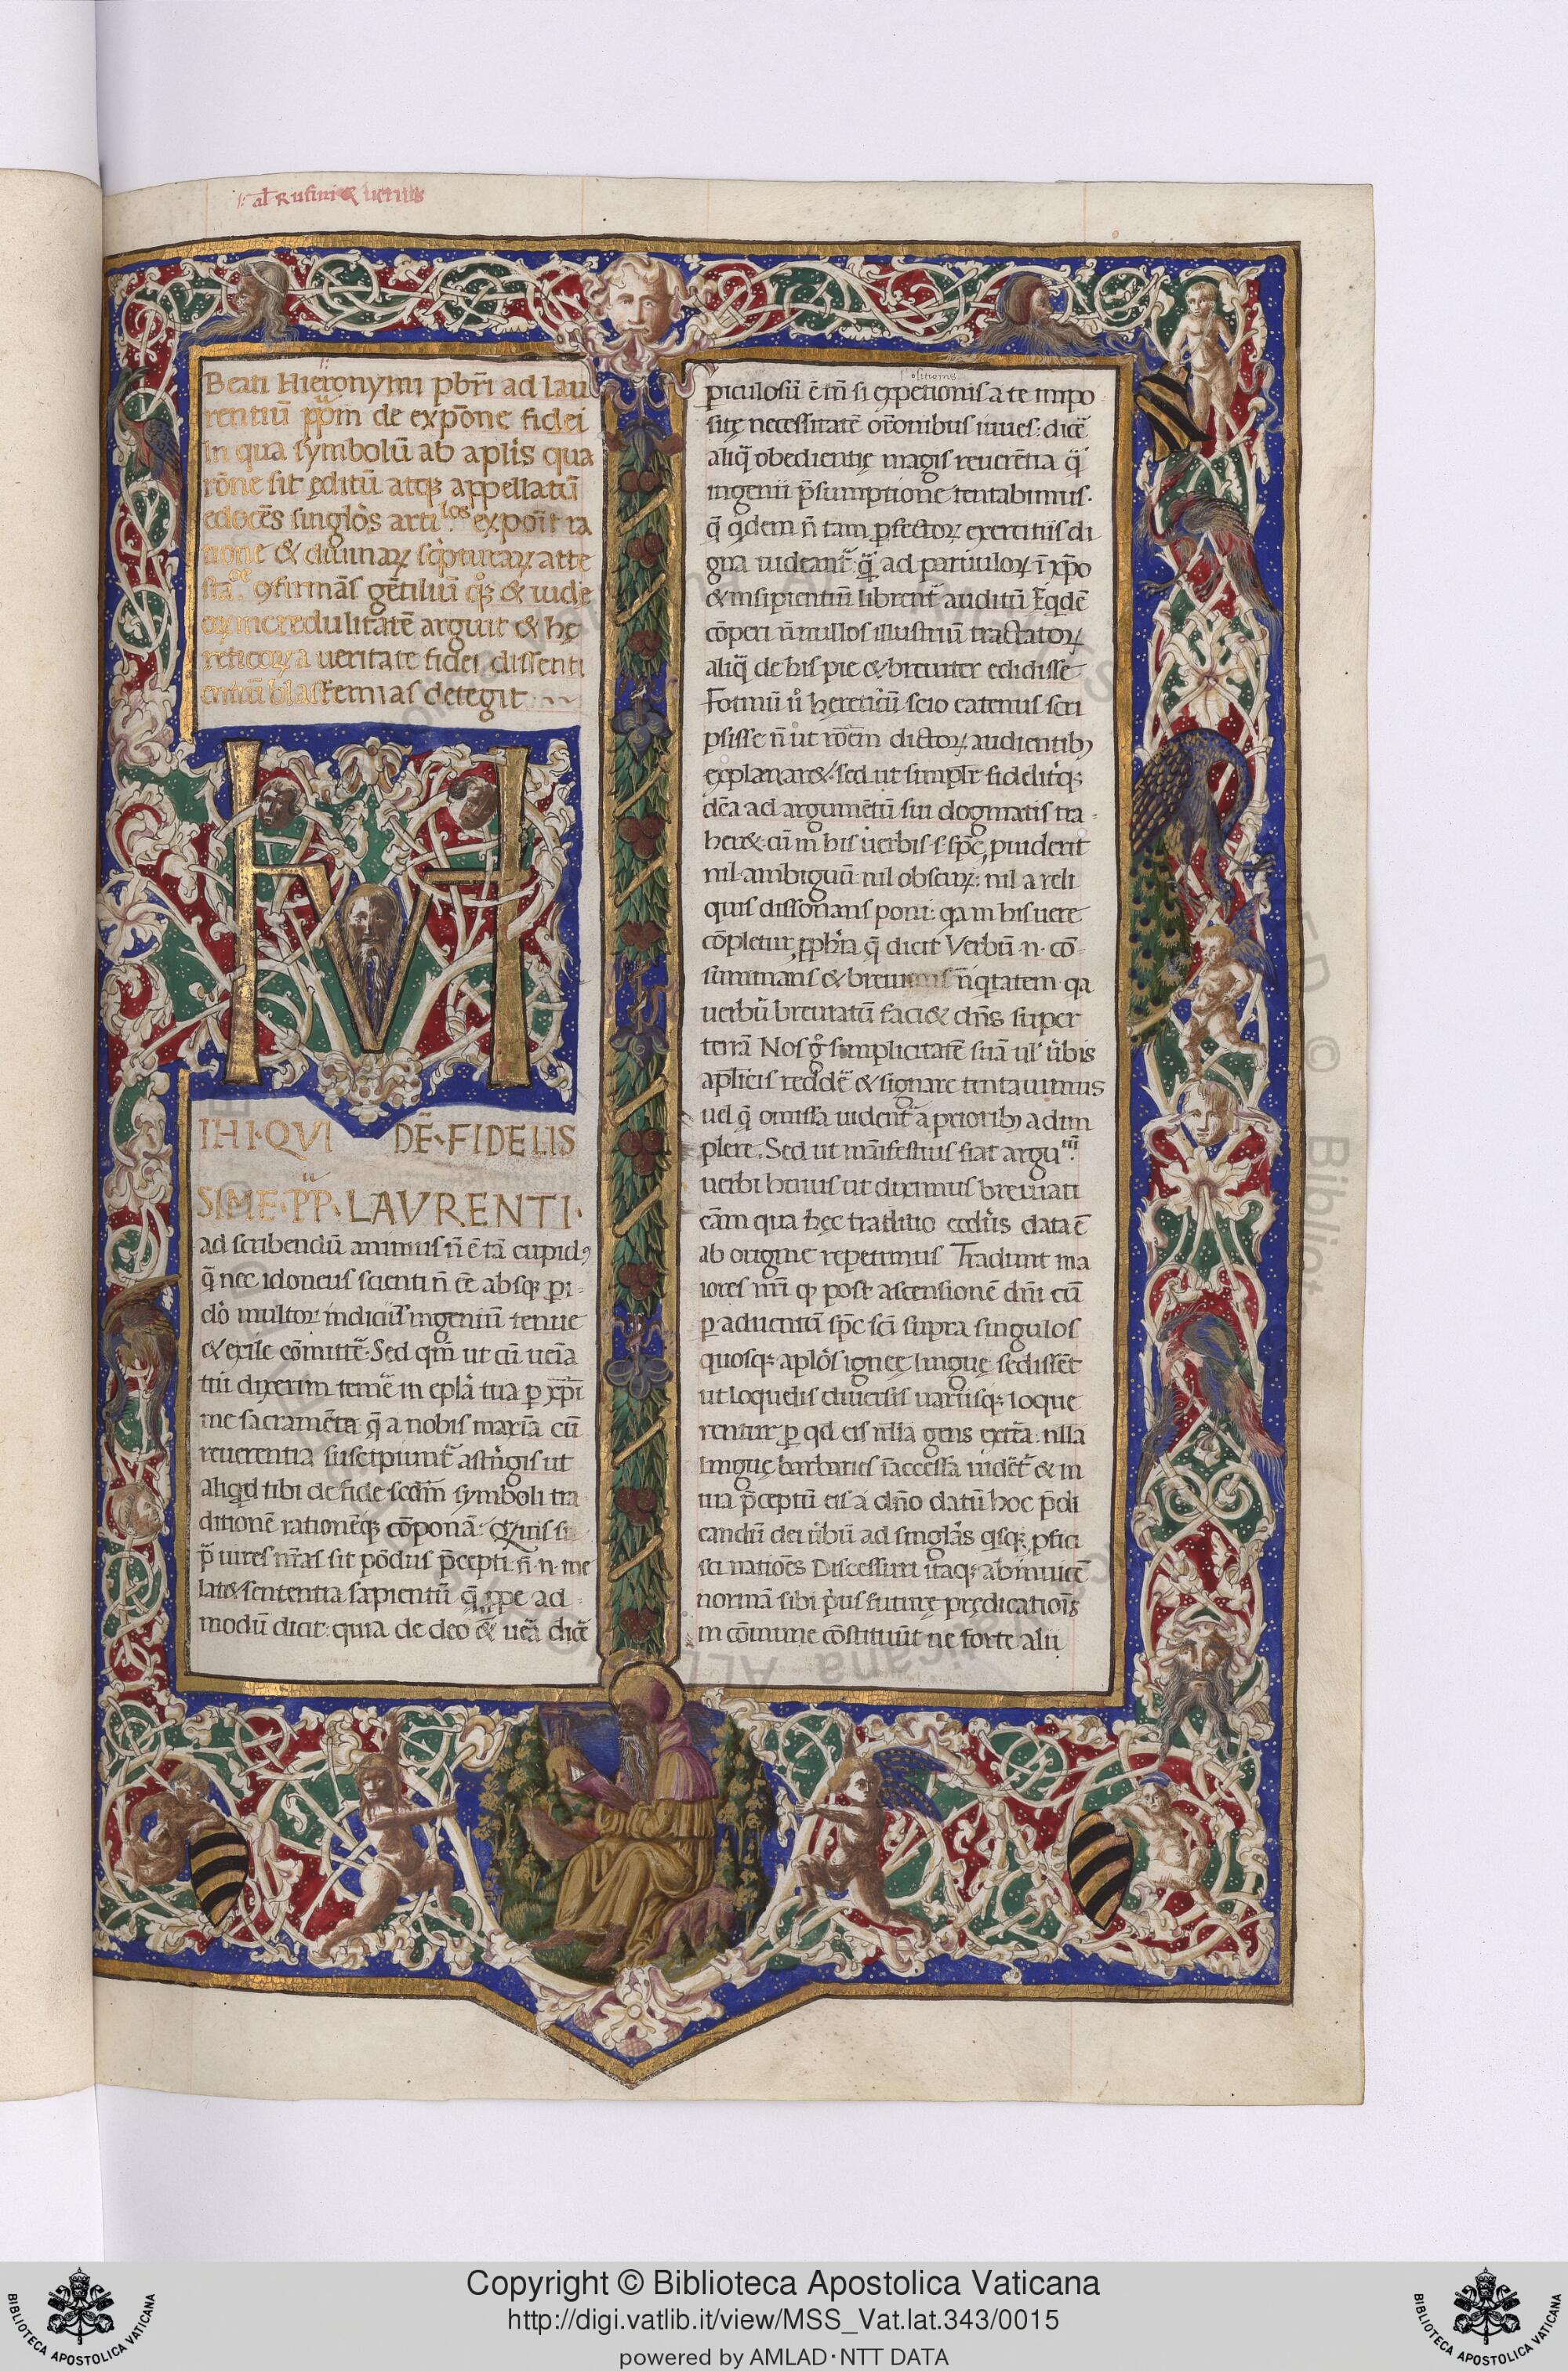 al Rufini & uerius
Beati Hieronymi pbr̄i ad lau
rentiū pp̄am de expōne fidei
In qua symbolū ab aplis̄ qua
rōne sit ęditū atq; appellatū
edocēs singlos̄ arti.los exponit ra
tione & diuinaꝝ sc̄pturaꝝ atte
stā.oe ꝯfirmās gētiliū q̊q; & iude
oꝝ incredulitatē arguit & hę
reticoꝝ a ueritate fidei dissenti
entiū blasfemias detegit
M
IHI·QVI DĒ·FIDELIS
SIME·PP̄·LAVRENTI·
ad scribendū animus n̄ ē tā cupidꝯ
q̄ nec idoneus scienti n̄ ēē absq; pi-
cl̊o multoꝝ indiciis ingeniū tenue
& exile cōmittē. Sed qm̄ ut cū uenīa
tui dixerim temē in eplā tua ꝑ xpī
me sacramēta q̄ a nobis maxīa cū
reuerentia suscipiunt̄ astrīgis ut
aliqd tibi de fide scdm̄ symboli tra
ditionē rationēq; cōponā: Quis su
p̄ uires nr̄as sit pōdus p̄cepti n̄.n. me
lat& sententia sapientū q̄ ꝓpe ad-
modū dicit: quia de deo & uēa dicē
ositionis
ꝑiculosū ē tn̄ si expetionis a te impo
sitę necessitatē or̄onibus iuues: dicē
aliq̄ obedientię magis reuerētia q̄
ingenii p̄sumptione tentabimus.
q̄ qdem n̄ tam ꝑfectoꝝ exercitiis di
gna uideant̄: q̄ ad paruuloꝝ ī xp̄o
& insipientiū librent̄ auditū Eqdē
cōperi n̄nullos illustriū tractatoꝝ
aliq̄ de his pie & breuiter edidisse
Fotinū ů hereticū scio eatenus scri
psisse n̄ ut rōem dictoꝝ audientibꝯ
explanar&: sed ut simplr̄ fideliṫq;
dc̄a ad argumētū sui dogmatis tra-
her& cū in his uerbis s. spc̄ ꝓuiderit
nil ambiguū nil obscuꝝ: nil a reli
quis dissonans poni: qa in his uere
cōpletur ꝓphīa q̄ dicit Verbū.n. cō-
summans & breuians n̄qtatem qa
uerbū breuiatū faci& dn̄s super
terrā Nos g̊ simplicitatē suā ul' ūbis
aplīcis reddē & signare tentauimus
uel q̄ omissa uident̄ a prioribꝯ adim
plere. Sed ut māifestius fiat argu.tū
uerbi huius ut diximus breuiati
cām qua hęc traditio ecclīis data ē
ab origine repetimus Tradunt ma
iores nr̄i ꝙ post ascensionē dn̄i cū
ꝑ aduentū spc̄ sc̄i supra singulos
quosq; aplōs ignee linguę sedissēt
ut loquelis diuersis uariisq; loque
rentur ꝑ qd eis nlla gens extēa: nlla
linguę barbaries īaccessa uidēt̄ & in
uia p̄ceptū eis a dn̄o datū hoc p̄di
candū dei ūbū ad singlās qsq; ꝓfici
sci natioēs Discessuri itaq; ab inuicē
normā sibi p̄us futurę prędicatiois
in cōmune cōstituūt ne forte alii
Copyright © Biblioteca Apostolica Vaticana
http://digi.vatlib.it/view/MSS_Vat.lat.343/0015
powered by AMLAD·NTT DATA
BIBLIOTECA APOSTOLICA VATICANA
BIBLIOTECA APOSTOLICA VATICANA